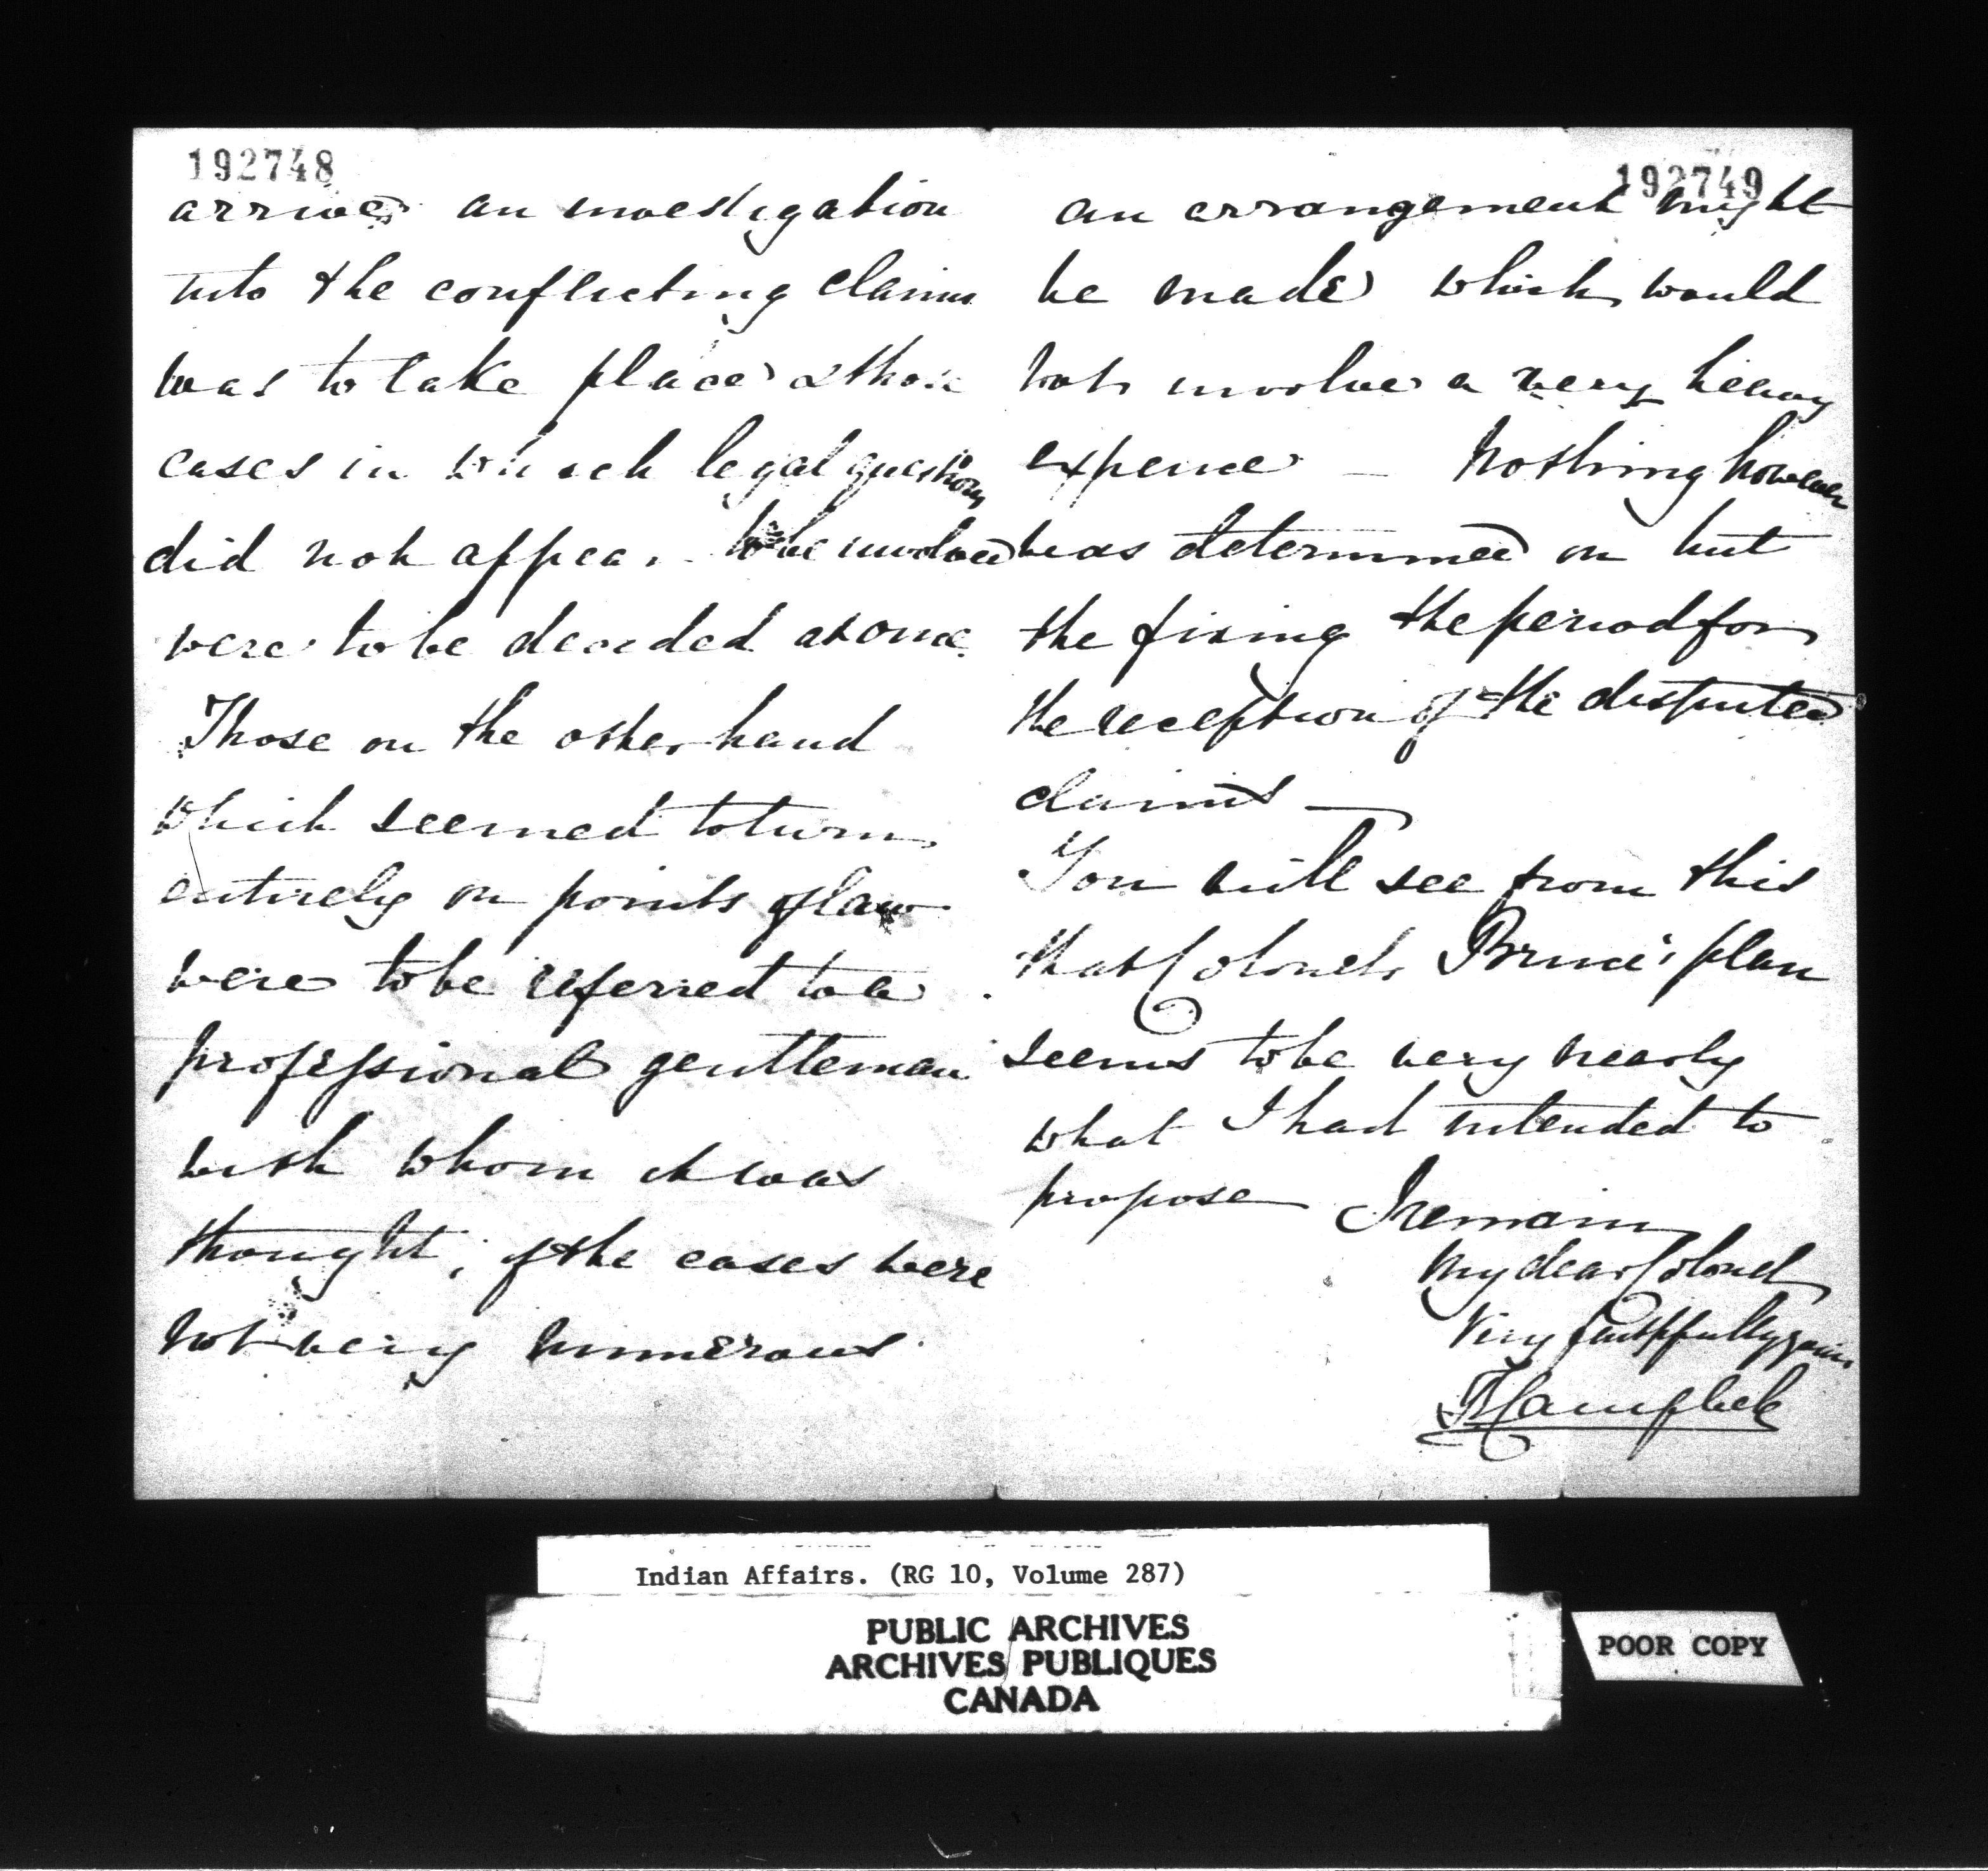 192748
arrived an investigation
into the conflicting claims
was to take place & those
cases in which legal questions
did not appear to be involved
were to be decided at once.
Those on the other hand
which seemed to turn
entirely on points of law
were to be referred to a
professional gentleman
with whom it was
thought, if the cases were
not very numerous
192749
an arrangement might
be made which would
not involve a very heavy
expence — Nothing however
was determined on but
the fixing the period for
the reception of the disputed
claims —
You will see from this
that Colonel Bruce's plan
seems to be very nearly
what I had intended to
propose I remain
My dear Colonel
Very faithfully yours
T Campbell
Indian Affairs. (RG 10, Volume 287)
PUBLIC ARCHIVES
ARCHIVES PUBLIQUES
CANADA
POOR COPY